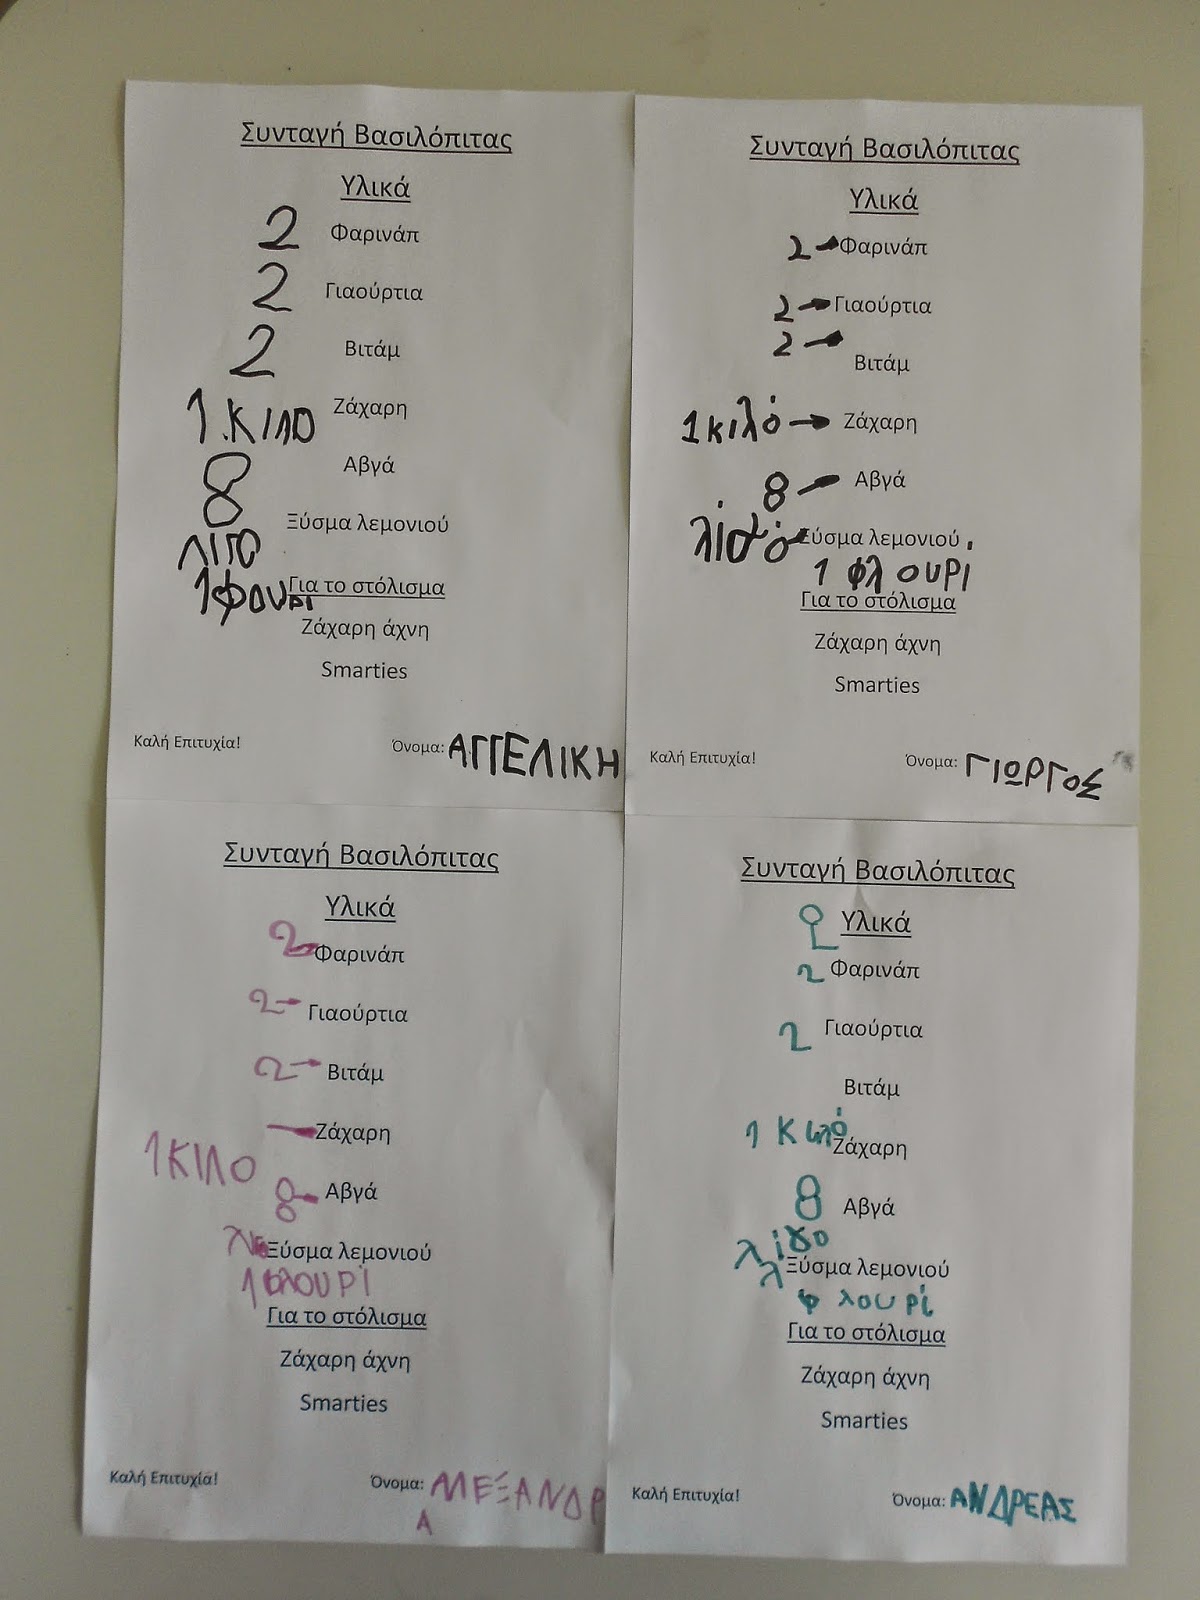 Συνταγή Βασιλόπιτας
Υλικά
2 Φαρινάπ
2 Γιαούρτια
2 Βιτάμ
1.ΚΙΛΟ Ζάχαρη
8 Αβγά
ΛΙΓΟ Ξύσμα λεμονιού
1 ΦΟΥΡΙ Για το στόλισμα
Ζάχαρη άχνη
Smarties
Καλή Επιτυχία! Όνομα: ΑΓΓΕΛΙΚΗ
Συνταγή Βασιλόπιτας
Υλικά
2 Φαρινάπ
2 Γιαούρτια
2 Βιτάμ
1 κιλό Ζάχαρη
8 Αβγά
Ξύσμα λεμονιού
1 φλουρι
Για το στόλισμα
Ζάχαρη άχνη
Smarties
Καλή Επιτυχία! Όνομα: ΓΙΩΡΓΟΣ
Συνταγή Βασιλόπιτας
Υλικά
2 Φαρινάπ
2 Γιαούρτια
2 Βιτάμ
Ζάχαρη
1 ΚΙΛΟ
8 Αβγά
Ξύσμα λεμονιού
1 ΦΛΟΥΡΙ
Για το στόλισμα
Ζάχαρη άχνη
Smarties
Καλή Επιτυχία! Όνομα: ΑΛΕΞΑΝΔΡ
Α
Συνταγή Βασιλόπιτας
2 Υλικά
2 Φαρινάπ
2 Γιαούρτια
Βιτάμ
1 κιλό Ζάχαρη
8 Αβγά
λίγο
λ Ξύσμα λεμονιού
φλουρί
Για το στόλισμα
Ζάχαρη άχνη
Smarties
Καλή Επιτυχία! Όνομα: ΑΝΔΡΕΑΣ